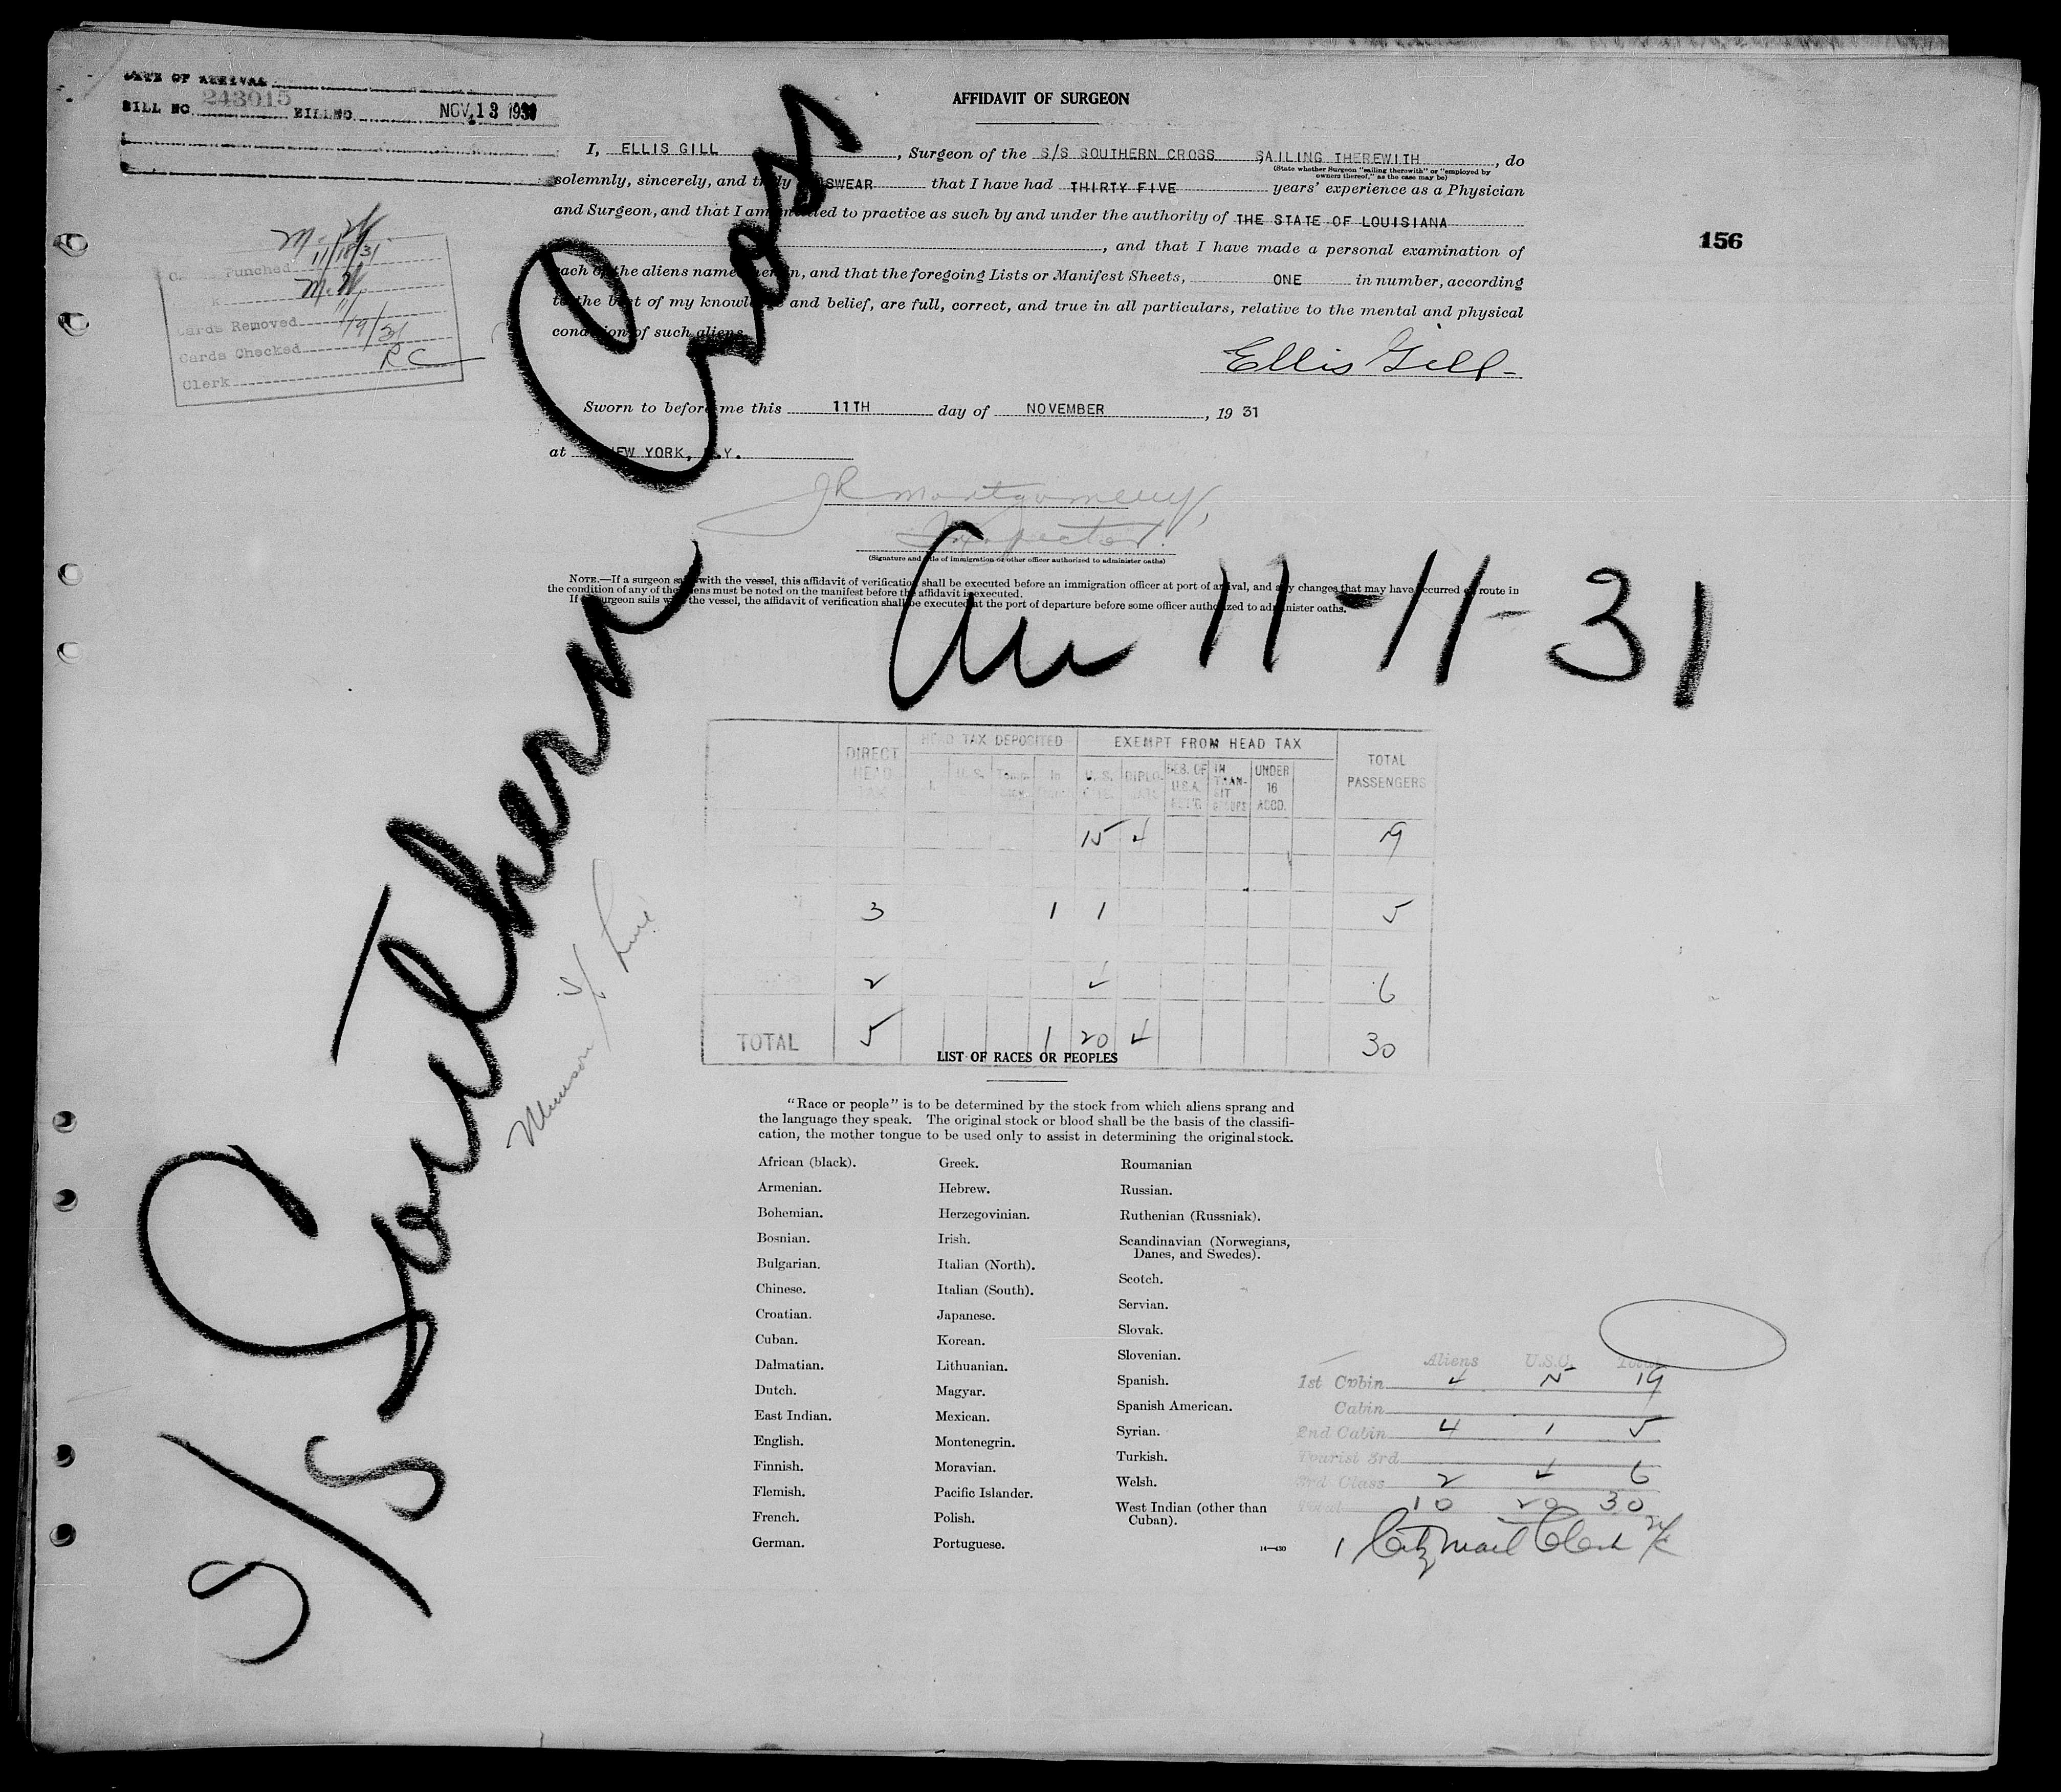 DATE OF ARRIVAL
BILL NO. 243015 BILLED NOV 13 19
AFFIDAVIT OF SURGEON
I, ELLIS GILL, Surgeon of the S/S SOUTHERN CROSS SAILING THEREWITH, do
(State whether Surgeon "sailing therewith" or "employed by
owners thereof," as the case may be)
solemnly, sincerely, and truly SWEAR that I have had THIRTY FIVE years' experience as a Physician
and Surgeon, and that I am entitled to practice as such by and under the authority of THE STATE OF LOUISIANA
, and that I have made a personal examination of
each of the aliens named herein, and that the foregoing Lists or Manifest Sheets, ONE in number, according
to the best of my knowledge and belief, are full, correct, and true in all particulars, relative to the mental and physical
condition of such aliens.
Ellis Gill
156
Punched 11/18/31
Cards Removed
Cards Checked 11/19/31
Clerk RC
Sworn to before me this 11TH day of NOVEMBER, 19 31
at NEW YORK, N.Y.
JR Montgomery,
Inspector.
(Signature and title of immigration or other officer authorized to administer oaths)
NOTE.—If a surgeon sails with the vessel, this affidavit of verification shall be executed before an immigration officer at port of arrival, and any changes that may have occurred en route in
the condition of any of the aliens must be noted on the manifest before the affidavit is executed.
If surgeon sails with the vessel, the affidavit of verification shall be executed at the port of departure before some officer authorized to administer oaths.
S/S Southern Cross
Arr 11-11-31
Munson S/S Line
DIRECT HEAD TAX HEAD TAX DEPOSITED EXEMPT FROM HEAD TAX TOTAL PASSENGERS
U.S. IN U.S. CITS. DIPLO- RES. OF U.S.A. IN TRAN-SIT GROUPS UNDER 16 ACCD.
15 4 19
3 1 1 5
2 4 6
TOTAL 5 1 20 4 30
LIST OF RACES OR PEOPLES
"Race or people" is to be determined by the stock from which aliens sprang and
the language they speak. The original stock or blood shall be the basis of the classifi-
cation, the mother tongue to be used only to assist in determining the original stock.
African (black).
Armenian.
Bohemian.
Bosnian.
Bulgarian.
Chinese.
Croatian.
Cuban.
Dalmatian.
Dutch.
East Indian.
English.
Finnish.
Flemish.
French.
German.
Greek.
Hebrew.
Herzegovinian.
Irish.
Italian (North).
Italian (South).
Japanese.
Korean.
Lithuanian.
Magyar.
Mexican.
Montenegrin.
Moravian.
Pacific Islander.
Polish.
Portuguese.
Roumanian
Russian.
Ruthenian (Russniak).
Scandinavian (Norwegians,
Danes, and Swedes).
Scotch.
Servian.
Slovak.
Slovenian.
Spanish.
Spanish American.
Syrian.
Turkish.
Welsh.
West Indian (other than
Cuban).
14—430
Aliens U.S.C. Total
1st Cabin 4 15 19
Cabin
2nd Cabin 4 1 5
Tourist 3rd
3rd Class 2 4 6
Total 10 20 30
1 Citz Mail Clerk